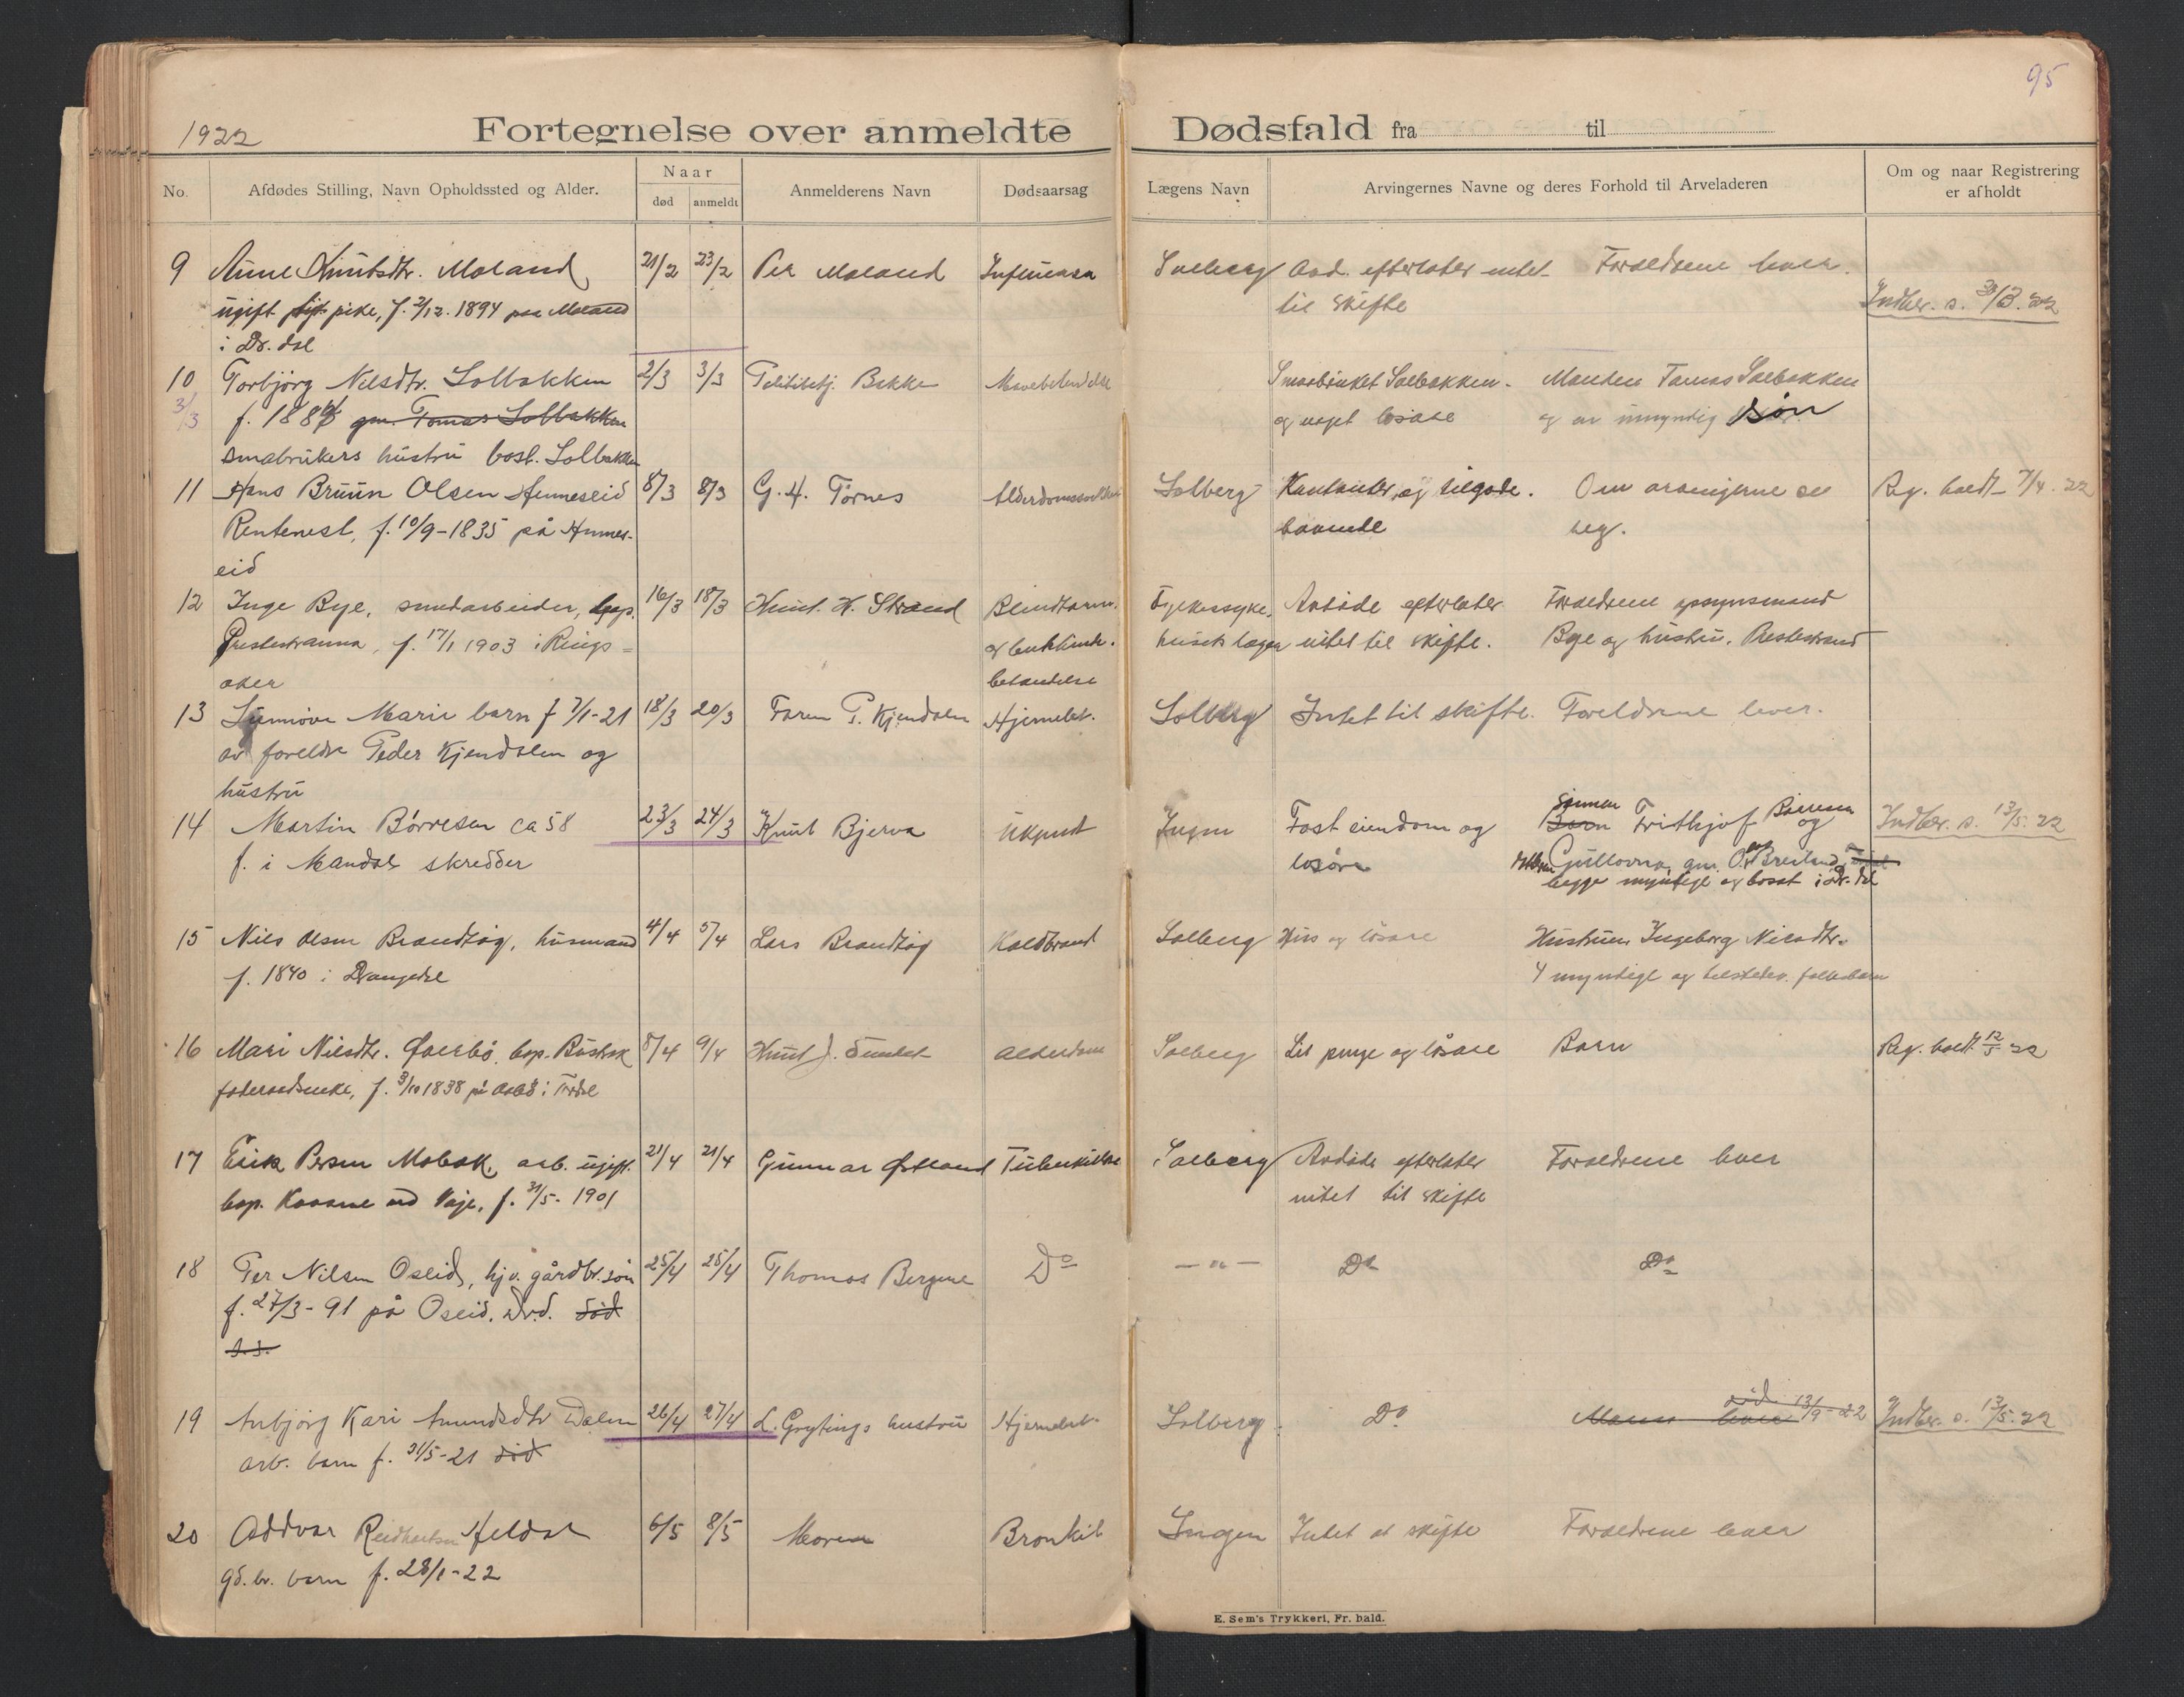 95
1922 Fortegnelse over anmeldte Dødsfald fra til
No. Afdødes Stilling, Navn Opholdssted og Alder. Naar død anmeldt Anmelderens Navn Dødsaarsag Lægens Navn Arvingernes Navne og deres Forhold til Arveladeren Om og naar Registrering er afholdt
9 Anne Knutsdtr. Moland 21/2 23/2 Per Moland Influensa Solberg Avd. efterlater intet Forældrene lever.
ugift pike, f. 2/12. 1894 paa Moland til skifte Indber. s. 30/3. 22
i Dr.dal
10 Torbjörg Nilsdtr. Solbakken 2/3 3/3 Politibetj. Bakke Mavebetendelse Smaabruket Solbakken. Manden Tomas Solbakken
3/3 f. 188 gm. Tomas Solbakken og noget løsøre og en umyndig søn
smabrukers hustru bost. Solbakken
11 Hans Bruun Olsen Henneseid 8/3 8/3 G. H. Tørnes Alderdomssvakhet Solberg Kontanter og tilgode. Om arvingerne se Reg. holdt 7/4. 22
Rentenest, f. 10/9-1835 på Hennes- havende reg.
eid
12 Inge Bye, sundarbeider, bop. 16/3 18/3 Knut K. Strand Blindtarm. Sykehus Avdøde efterlater Forældrene opsynsmand
Prestestranna, f. 17/1 1903 i Rings= og bukhinde. intet til skifte. Bye og hustru. Prestestrand
aker betændelse
13 Sunnøve Marie barn f 7/1-21 18/3 20/3 Faren P. Kjendalen Hjernebet. Solberg Intet til skifte. Foreldrene lever.
av foreldre Peder Kjendalen og
hustru
14 Martin Börresen ca 58 23/3 24/3 Knut Bjerva Ukjent Ingen Fast eiendom og Barn Sönnen Frithjof Börresen og Indber. s. 13/5. 22
f. i Mandal skredder løsøre Gullovna, gm. Breiland
begge myndige og bosat i Dr.dal
15 Nils Olsen Brandtøg, husmand 4/4 5/4 Lars Brandtøg Koldbrand Solberg Hus og løsøre Hustruen Ingeborg Nilsdtr.
f. 1840 i Drangedal 4 myndige og
16 Mari Nilsdtr. bop. 8/4 9/4 Knut J. Alderdom Solberg Lit penge og løsøre Barn Reg. holdt 12/5 22
føderaadsenke, f. 3/10 1838 på i Tørdal
17 Erik Persen Mobæk, arb. ugift 21/4 21/4 Gunnar Østland Tuberkulose Solberg Avdøde efterlater Forældrene lever
bop. Kaasene ved Voje, f. 31/5. 1901 intet til skifte
18 Per Nilsen Oseid, hjv. gårdbr. søn 25/4 25/4 Thomas Bergene Do — " — Do Do
f. 27/3-91 på Oseid. Dr.d. død
s. s.
19 Anbjörg Kari Amundsdtr Dalen 26/4 27/4 L. Grytings hustru Hjernebet. Solberg Do Moren lever død 13/9 22 Indber. s. 13/5. 22
arb. barn f. 31/5-21 død
20 Oddvar Heldal 6/5 8/5 Moren Bronkit Ingen Intet at skifte Forældrene lever
gd. br. barn f. 28/1-22
E. Sem's Trykkeri, Fr. hald.